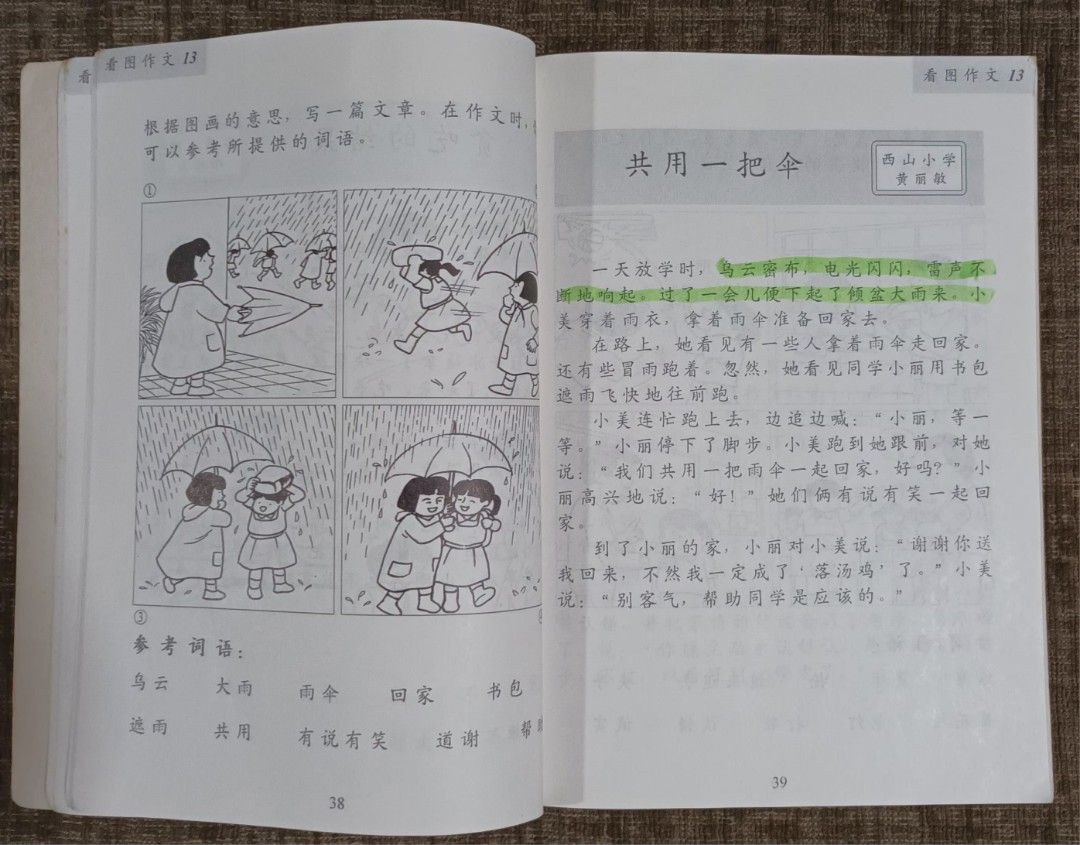 看
看图作文 13
根据图画的意思，写一篇文章。在作文时，
可以参考所提供的词语。
①
③
参考词语：
乌云 大雨 雨伞 回家 书包
遮雨 共用 有说有笑 道谢 帮助
38
看图作文 13
共用一把伞
西山小学
黄丽敏
一天放学时，乌云密布，电光闪闪，雷声不
断地响起。过了一会儿便下起了倾盆大雨来。小
美穿着雨衣，拿着雨伞准备回家去。
在路上，她看见有一些人拿着雨伞走回家。
还有些冒雨跑着。忽然，她看见同学小丽用书包
遮雨飞快地往前跑。
小美连忙跑上去，边追边喊：“小丽，等一
等。”小丽停下了脚步。小美跑到她跟前，对她
说：“我们共用一把雨伞一起回家，好吗？”小
丽高兴地说：“好！”她们俩有说有笑一起回
家。
到了小丽的家，小丽对小美说：“谢谢你送
我回来，不然我一定成了‘落汤鸡’了。”小美
说：“别客气，帮助同学是应该的。”
39